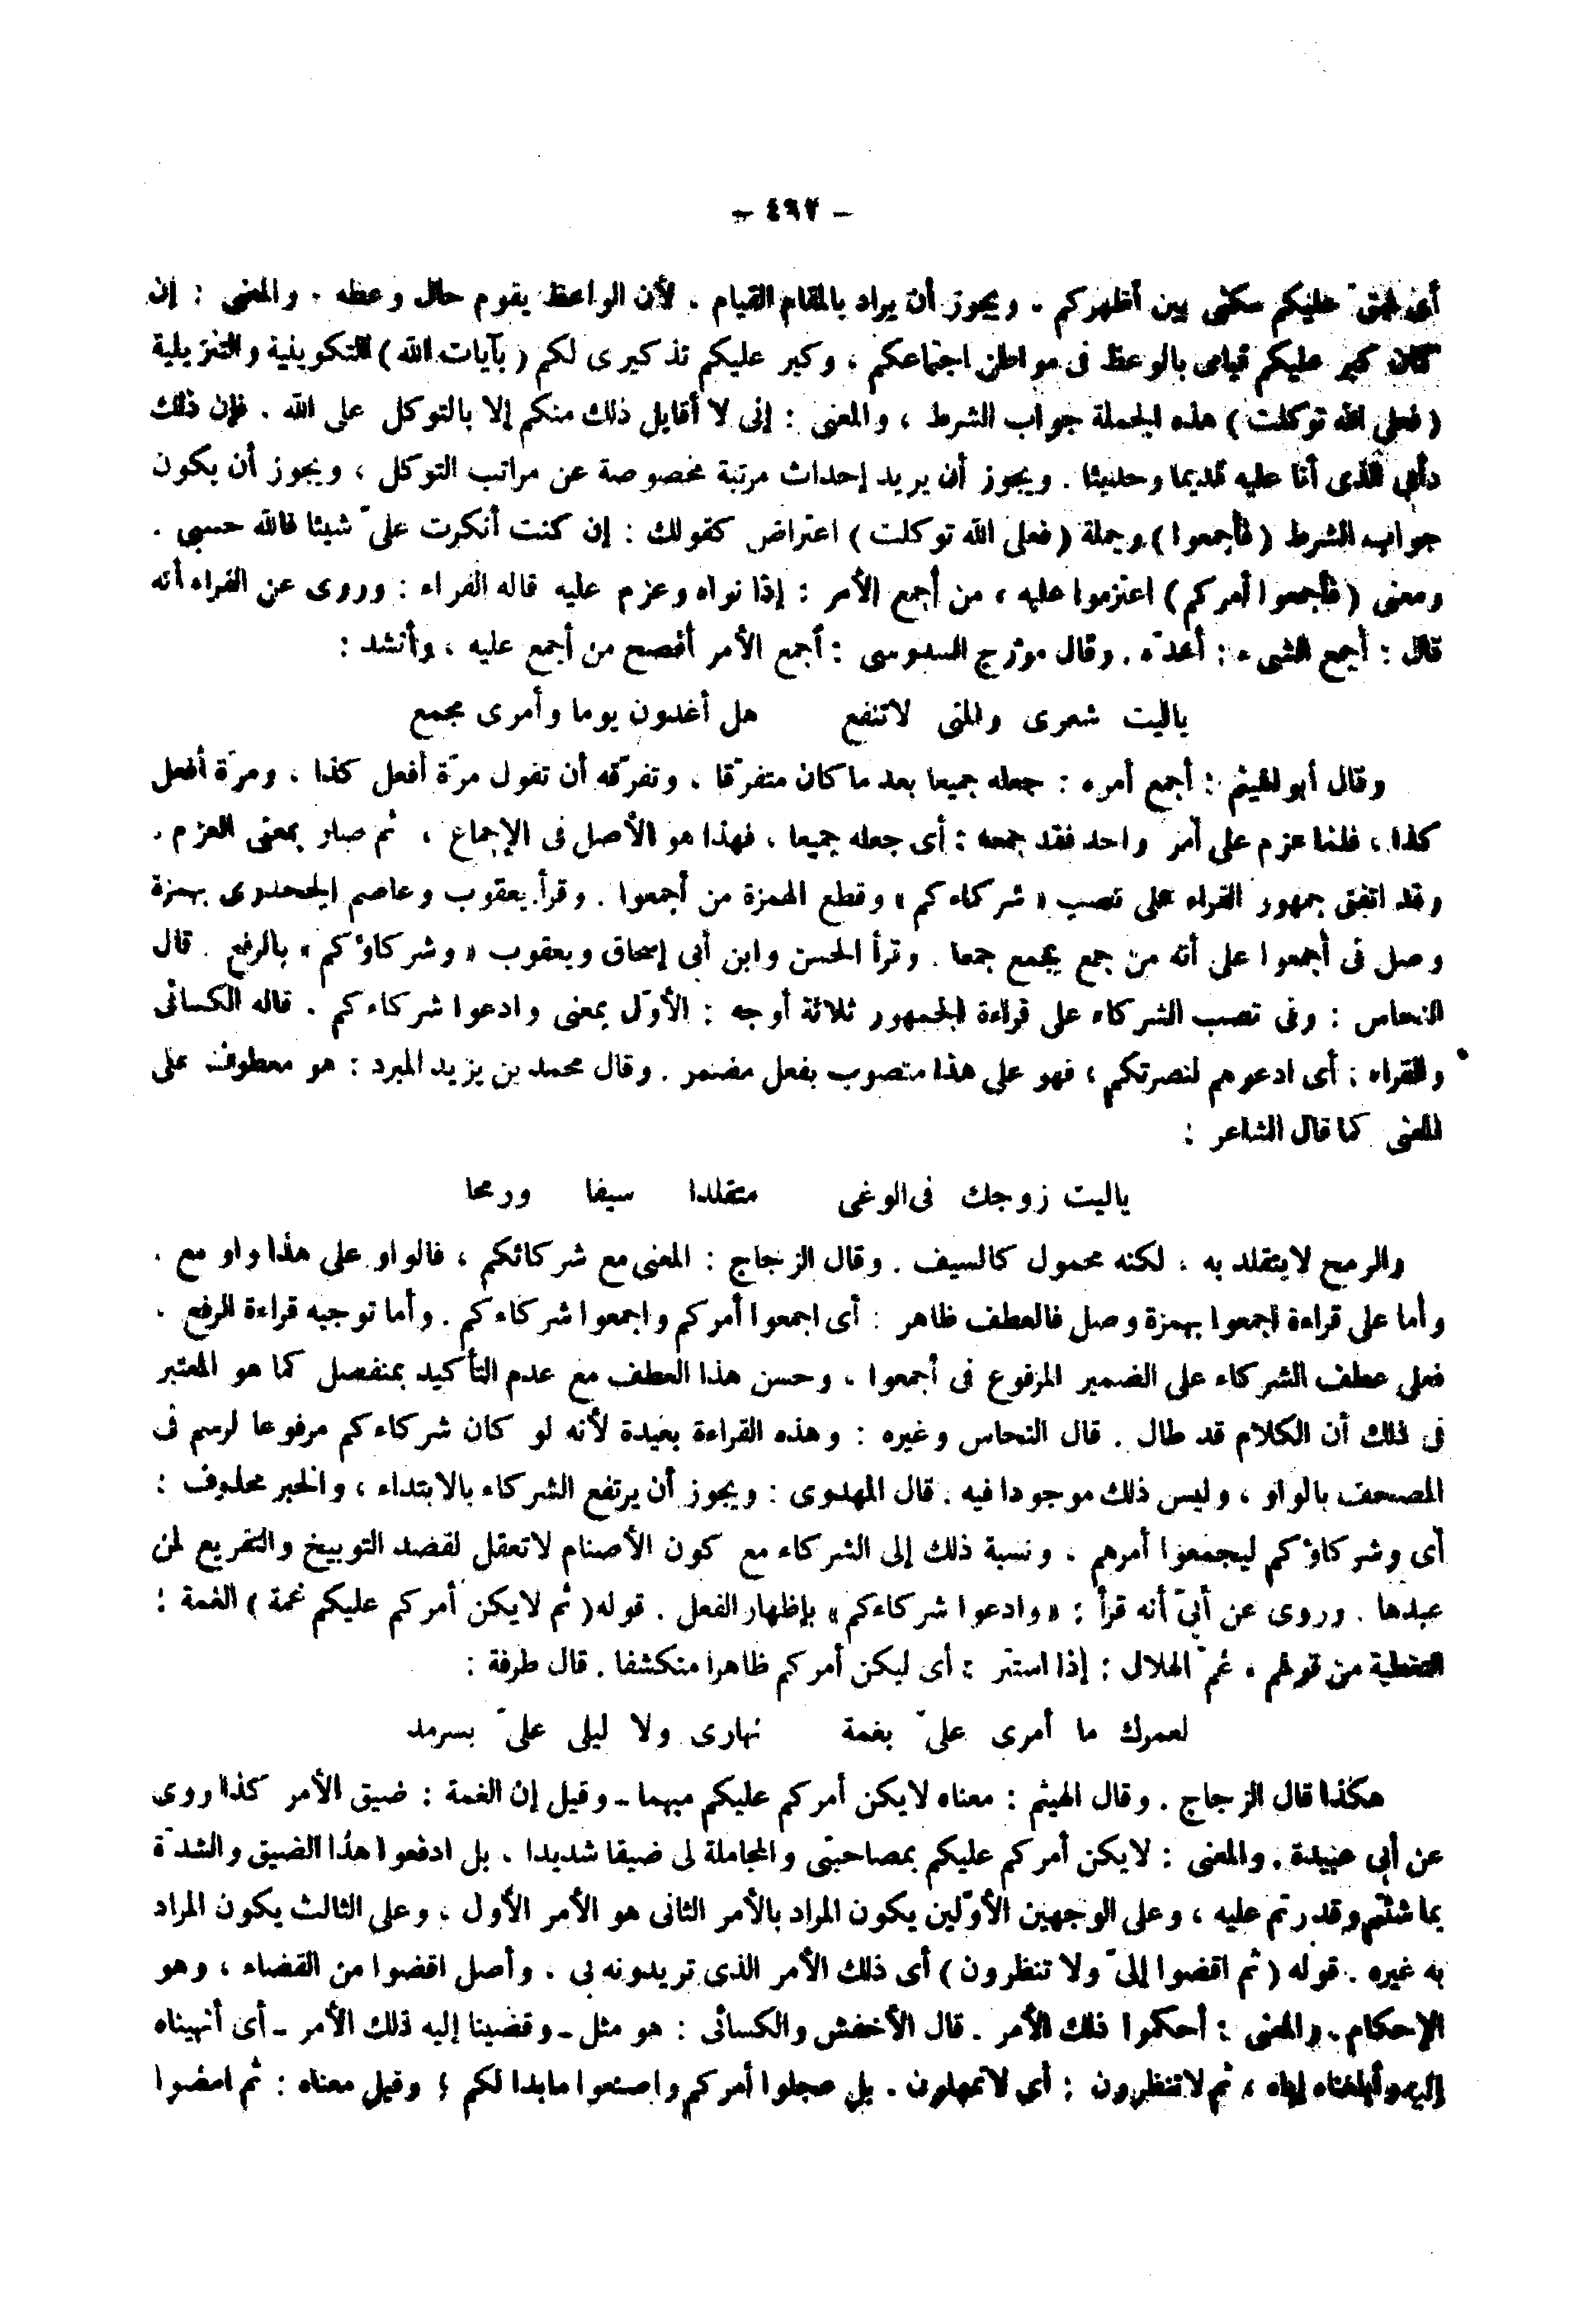 - ٤٦٢ -
أى شق عليكم مكثى بين أظهركم . ويجوز أن يراد بالمقام القيام . لأن الواعظ يقوم حال وعظه . والمعنى : إن
كان كبر عليكم قيامى بالوعظ فى مواطن اجتماعكم ، وكبر عليكم تذكيرى لكم ( بآيات الله ) التكوينية والتنزيلية
( فعلى الله توكلت ) هذه الجملة جواب الشرط ، والمعنى : إنى لا أقابل ذلك منكم إلا بالتوكل على الله . فإن ذلك
دأبى الذى أنا عليه قديما وحديثا . ويجوز أن يريد إحداث مرتبة مخصوصة عن مراتب التوكل ، ويجوز أن يكون
جواب الشرط ( فأجمعوا ) وجملة ( فعلى الله توكلت ) اعتراض كقولك : إن كنت أنكرت علىّ شيئا فالله حسبى .
ومعنى ( فأجمعوا أمركم ) اعتزموا عليه ، من أجمع الأمر : إذا نواه وعزم عليه قاله الفراء : وروى عن الفراء أنه
قال : أجمع الشىء : أعدّه . وقال مؤرج السدوسى : أجمع الأمر أفصح من أجمع عليه ، وأنشد :
ياليت شعرى والمنى لاتنفع هل أغدون يوما وأمرى مجمع
وقال أبو الهيثم : أجمع أمره : جعله جميعا بعد ما كان متفرّقا ، وتفرّقه أن تقول مرّة أفعل كذا ، ومرّة أفعل
كذا ، فلما عزم على أمر واحد فقد جمعه : أى جعله جميعا ، فهذا هو الأصل فى الإجماع ، ثم صار بمعنى العزم .
وقد اتفق جمهور القراء على نصب « شركاءكم » وقطع الهمزة من أجمعوا . وقرأ يعقوب وعاصم الجحدرى بهمزة
وصل فى أجمعوا على أنه من جمع يجمع جمعا . وقرأ الحسن وابن أبى إسحاق ويعقوب « وشركاؤكم » بالرفع . قال
النحاس : وفى نصب الشركاء على قراءة الجمهور ثلاثة أوجه : الأوّل بمعنى وادعوا شركاءكم . قاله الكسائى
والفراء : أى ادعوهم لنصرتكم ، فهو على هذا منصوب بفعل مضمر . وقال محمد بن يزيد المبرد : هو معطوف على
المعنى كما قال الشاعر :
ياليت زوجك فى الوغى متقلدا سيفا ورمحا
والرمح لايتقلد به ، لكنه محمول كالسيف . وقال الزجاج : المعنى مع شركائكم ، فالواو على هذا واو مع .
وأما على قراءة اجمعوا بهمزة وصل فالعطف ظاهر : أى اجمعوا أمركم واجمعوا شركاءكم . وأما توجيه قراءة الرفع .
فعلى عطف الشركاء على الضمير المرفوع فى أجمعوا ، وحسن هذا العطف مع عدم التأكيد بمنفصل كما هو المعتبر
فى ذلك أن الكلام قد طال . قال النحاس وغيره : وهذه القراءة بعيدة لأنه لو كان شركاءكم مرفوعا لرسم فى
المصحف بالواو ، وليس ذلك موجودا فيه . قال المهدوى : ويجوز أن يرتفع الشركاء بالابتداء ، والخبر محذوف :
أى وشركاؤكم ليجمعوا أمرهم ، ونسبة ذلك إلى الشركاء مع كون الأصنام لاتعقل لقصد التوبيخ والتقريع لمن
عبدها . وروى عن أبىّ أنه قرأ : « وادعوا شركاءكم » بإظهار الفعل . قوله ( ثم لايكن أمركم عليكم غمة ) الغمة :
التغطية من قولهم ، غمّ الهلال : إذا استتر : أى ليكن أمركم ظاهرا منكشفا . قال طرفة :
لعمرك ما أمرى علىّ بغمة نهارى ولا ليلى علىّ بسرمد
هكذا قال الزجاج . وقال الهيثم : معناه لايكن أمركم عليكم مبهما ـ وقيل إن الغمة : ضيق الأمر كذا روى
عن أبى عبيدة . والمعنى : لايكن أمركم عليكم بمصاحبتى والمجاملة لى ضيقا شديدا ، بل ادفعوا هذا الضيق والشدّة
بما شئتم وقدرتم عليه ، وعلى الوجهين الأوّلين يكون المراد بالأمر الثانى هو الأمر الأول ، وعلى الثالث يكون المراد
به غيره . قوله ( ثم اقضوا إلىّ ولا تنظرون ) أى ذلك الأمر الذى تريدونه بى . وأصل اقضوا من القضاء ، وهو
الإحكام . والمعنى : أحكموا ذلك الأمر . قال الأخفش والكسائى : هو مثل ـ وقضينا إليه ذلك الأمر ـ أى أنهيناه
إليه وأبلغناه إياه ، ثم لاتنظرون : أى لاتمهلون . بل عجلوا أمركم واصنعوا مابدا لكم ؛ وقيل معناه : ثم امضوا